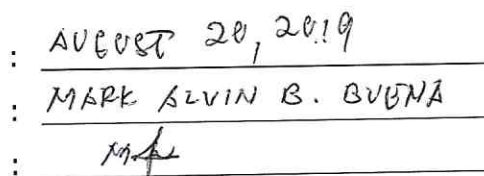 : AUGUST 20, 2019
: MARK ALVIN B. BUENA
: